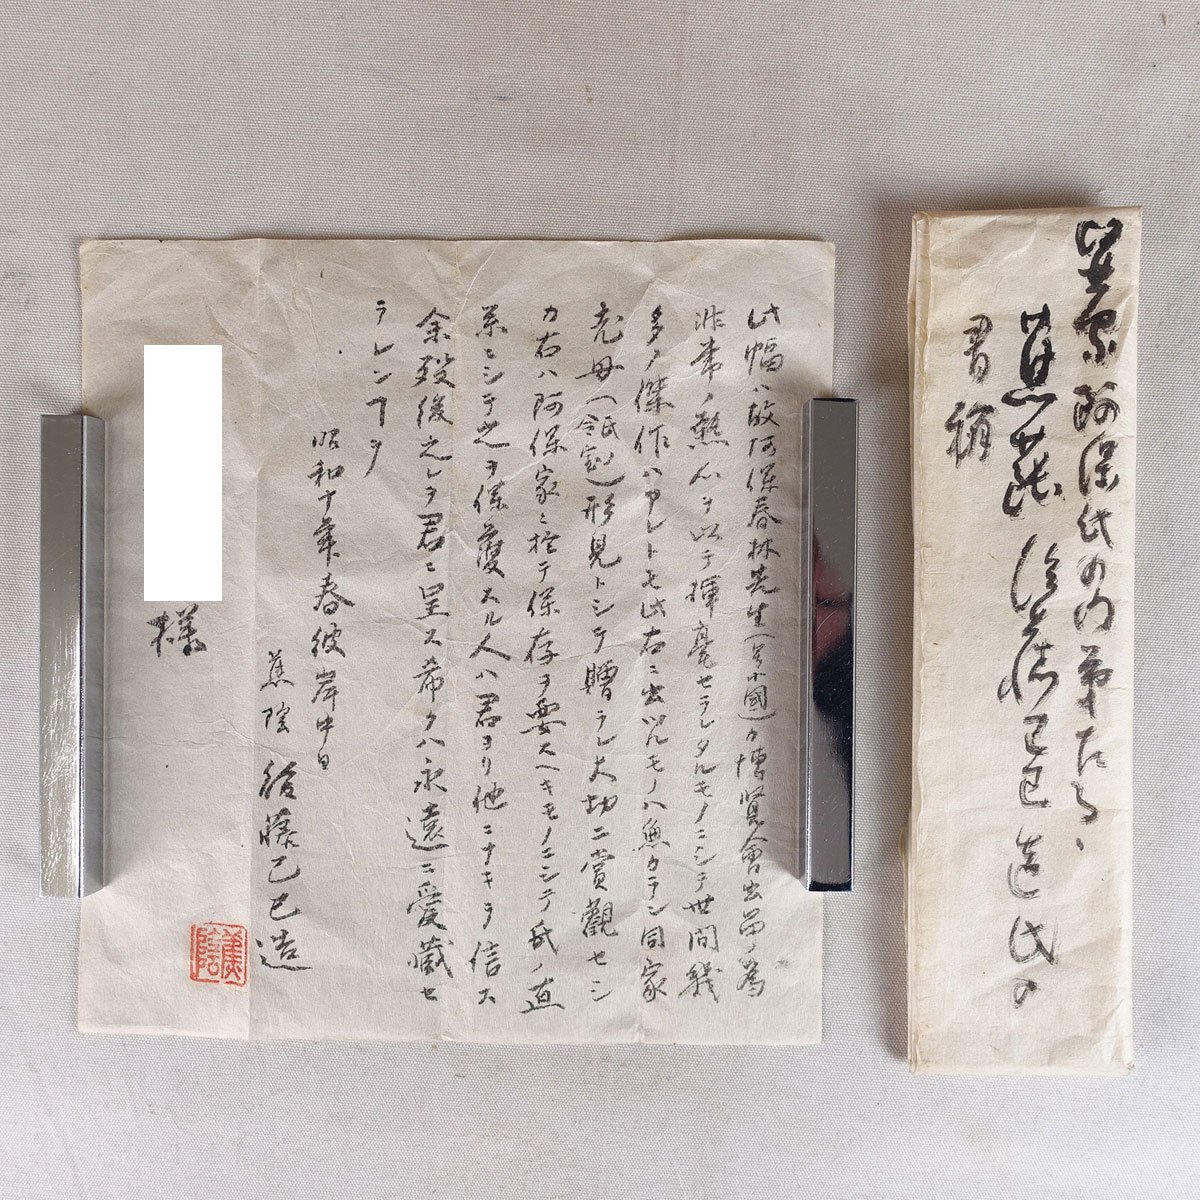 此幅ハ故阿保春林先生(号小國)カ博覧會出品ノ為
非常ノ熱心ヲ以テ揮毫セラレタルモノニシテ世間幾
多ノ傑作ハアレトモ此右ニ出ツルモノハ無カラン同家
ヨリ母(氏)形見トシテ贈ラレ大切ニ賞觀セシ
カ右ハ阿保家ニ於テ保存ヲ要スヘキモノニシテ氏ノ直
系ニシテ之ヲ保護スル人ハ君ヨリ他ニナキヲ信ス
余歿後之レヲ君ニ呈ス希クハ永遠ニ愛蔵セ
ラレンヿヲ
昭和十年春彼岸中日
蕉陰 後藤己巳造
蕉陰
様
畫家阿保氏の門弟たる、
蕉蔭 後藤己巳造氏の
書翰